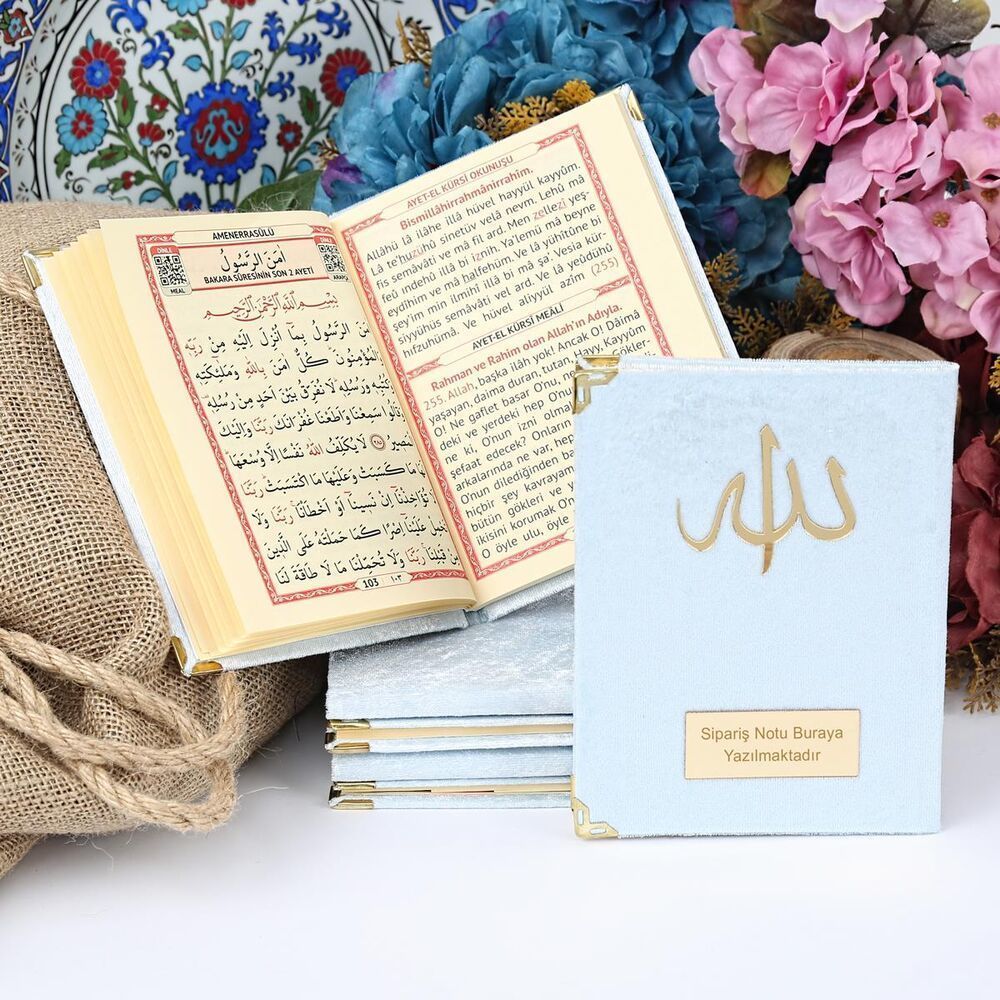 AMENERRASÛLÜ
DİNLE
DİNLE
اٰمَنَ الرَّسُولُ
BAKARA SÛRESİNİN SON 2 AYETİ
MEAL
ARAPÇA
بِسْمِ اللّٰهِ الرَّحْمٰنِ الرَّحِيمِ
اٰمَنَ الرَّسُولُ بِمَٓا اُنْزِلَ اِلَيْهِ مِنْ رَبِّهٖ
وَالْمُؤْمِنُونَ كُلٌّ اٰمَنَ بِاللّٰهِ وَمَلٰٓئِكَتِهٖ
وَكُتُبِهٖ وَرُسُلِهٖ لَا نُفَرِّقُ بَيْنَ اَحَدٍ مِنْ رُسُلِهٖ
وَقَالُوا سَمِعْنَا وَاَطَعْنَا غُفْرَانَكَ رَبَّنَا وَاِلَيْكَ
الْمَصِيرُ ﴿٢٨٥﴾ لَا يُكَلِّفُ اللّٰهُ نَفْسًا اِلَّا وُسْعَهَا
لَهَا مَا كَسَبَتْ وَعَلَيْهَا مَا اكْتَسَبَتْ رَبَّنَا
لَا تُؤَاخِذْنَٓا اِنْ نَسِينَٓا اَوْ اَخْطَأْنَا رَبَّنَا وَلَا
تَحْمِلْ عَلَيْنَٓا اِصْرًا كَمَا حَمَلْتَهُ عَلَى الَّذِينَ
مِنْ قَبْلِنَا رَبَّنَا وَلَا تُحَمِّلْنَا مَا لَا طَاقَةَ لَنَا
103 ١٠٣
AYET-EL KÜRSİ OKUNUŞU
Bismillâhirrahmânirrahîm.
Allâhü lâ ilâhe illâ hüvel hayyül kayyûm.
Lâ te'huzühû sinetüv velâ nevm. Lehû mâ
fis semâvâti ve mâ fil ard. Men zellezî yeş-
feû ındehû illâ bi iznih. Ya'lemü mâ beyne
eydîhim ve mâ halfehüm. Ve lâ yühîtûne bi
şey'im min ilmihî illâ bi mâ şa'. Vesia kür-
siyyühüs semâvâti vel ard. Ve lâ yeûdühû
hıfzuhümâ. Ve hüvel aliyyül azîm (255)
AYET-EL KÜRSİ MEÂLİ
Rahman ve Rahim olan Allah'ın Adıyla.
255. Allah, başka ilâh yok! Ancak O! Dâima
yaşayan, daima duran, tutan, Hayy, Kayyûm
O! Ne gaflet basar O'nu, Gökler-
deki ve yerdeki hep O'nu
ne ki, O'nun izni olma
şefaat edecek? Onların
arkalarında ne var, hep
O'nun dilediğinden ba
hiçbir şey kavrayam
bütün gökleri ve y
ikisini korumak O'n
O öyle ulu, öyle
الله
Sipariş Notu Buraya
Yazılmaktadır